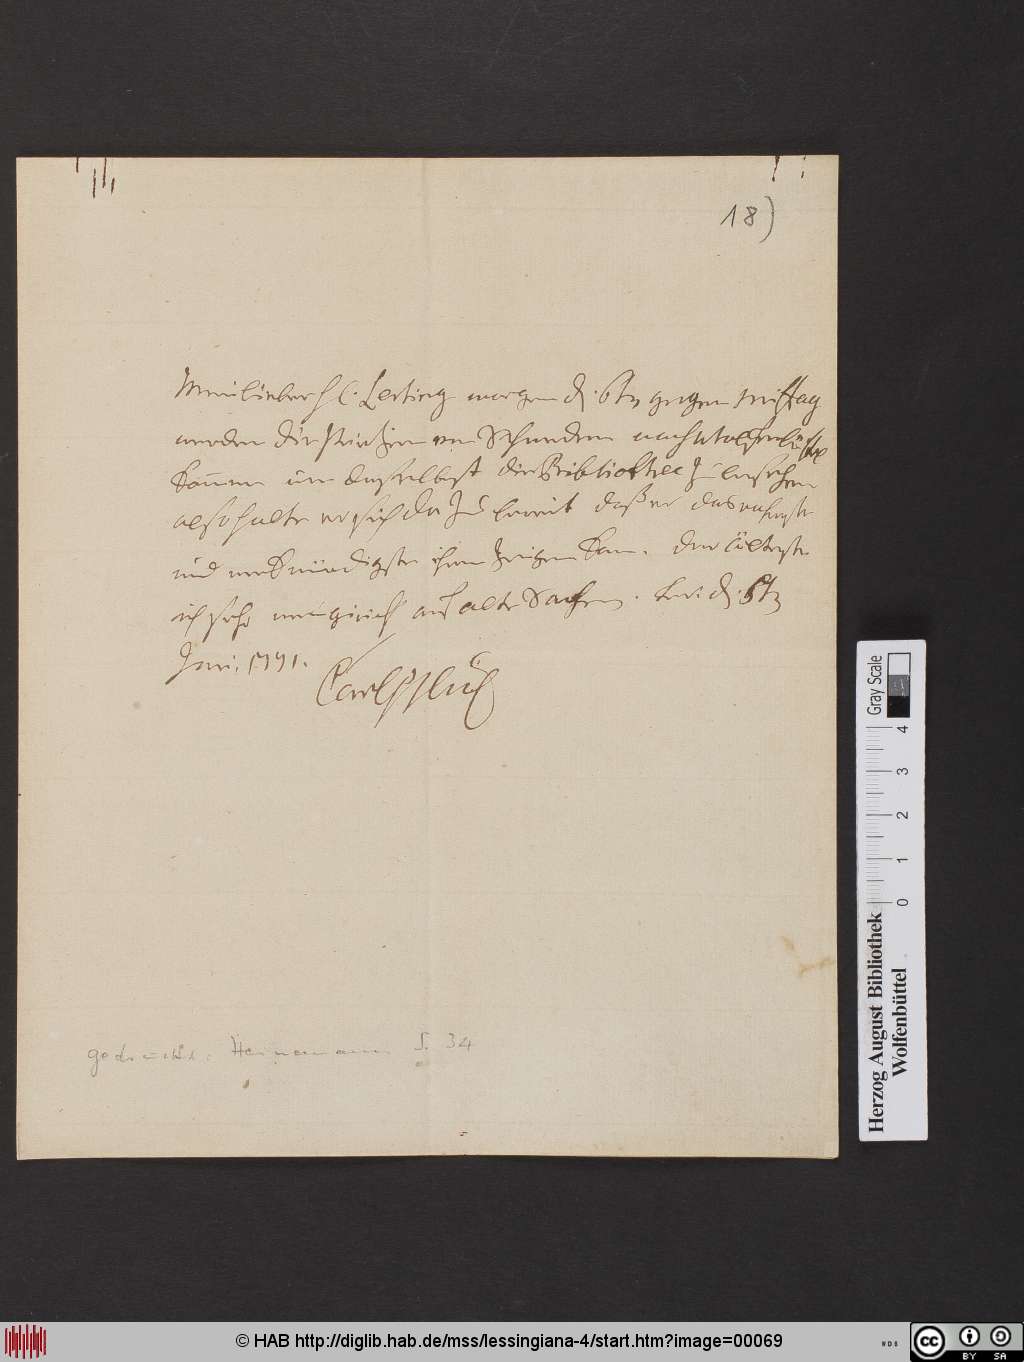 18)
Mein lieber H l. Lessing morgen d. 6tn gegen Mittag
werden die Printzen von Schweden nach Wolfenbüttel
kommen um daselbst die Bibliothec zu besehen
also halte er sich da zu bereit daß er das
und merkwürdigste ihnen zeigen kan. der älteste
ist sehr neugirich auf alte Sachen. d. 5tn
1771.
Carl
gedruckt: Heinemann S. 34
Gray Scale
0 1 2 3 4
Herzog August Bibliothek
Wolfenbüttel
© HAB http://diglib.hab.de/mss/lessingiana-4/start.htm?image=00069
WDB
cc BY SA